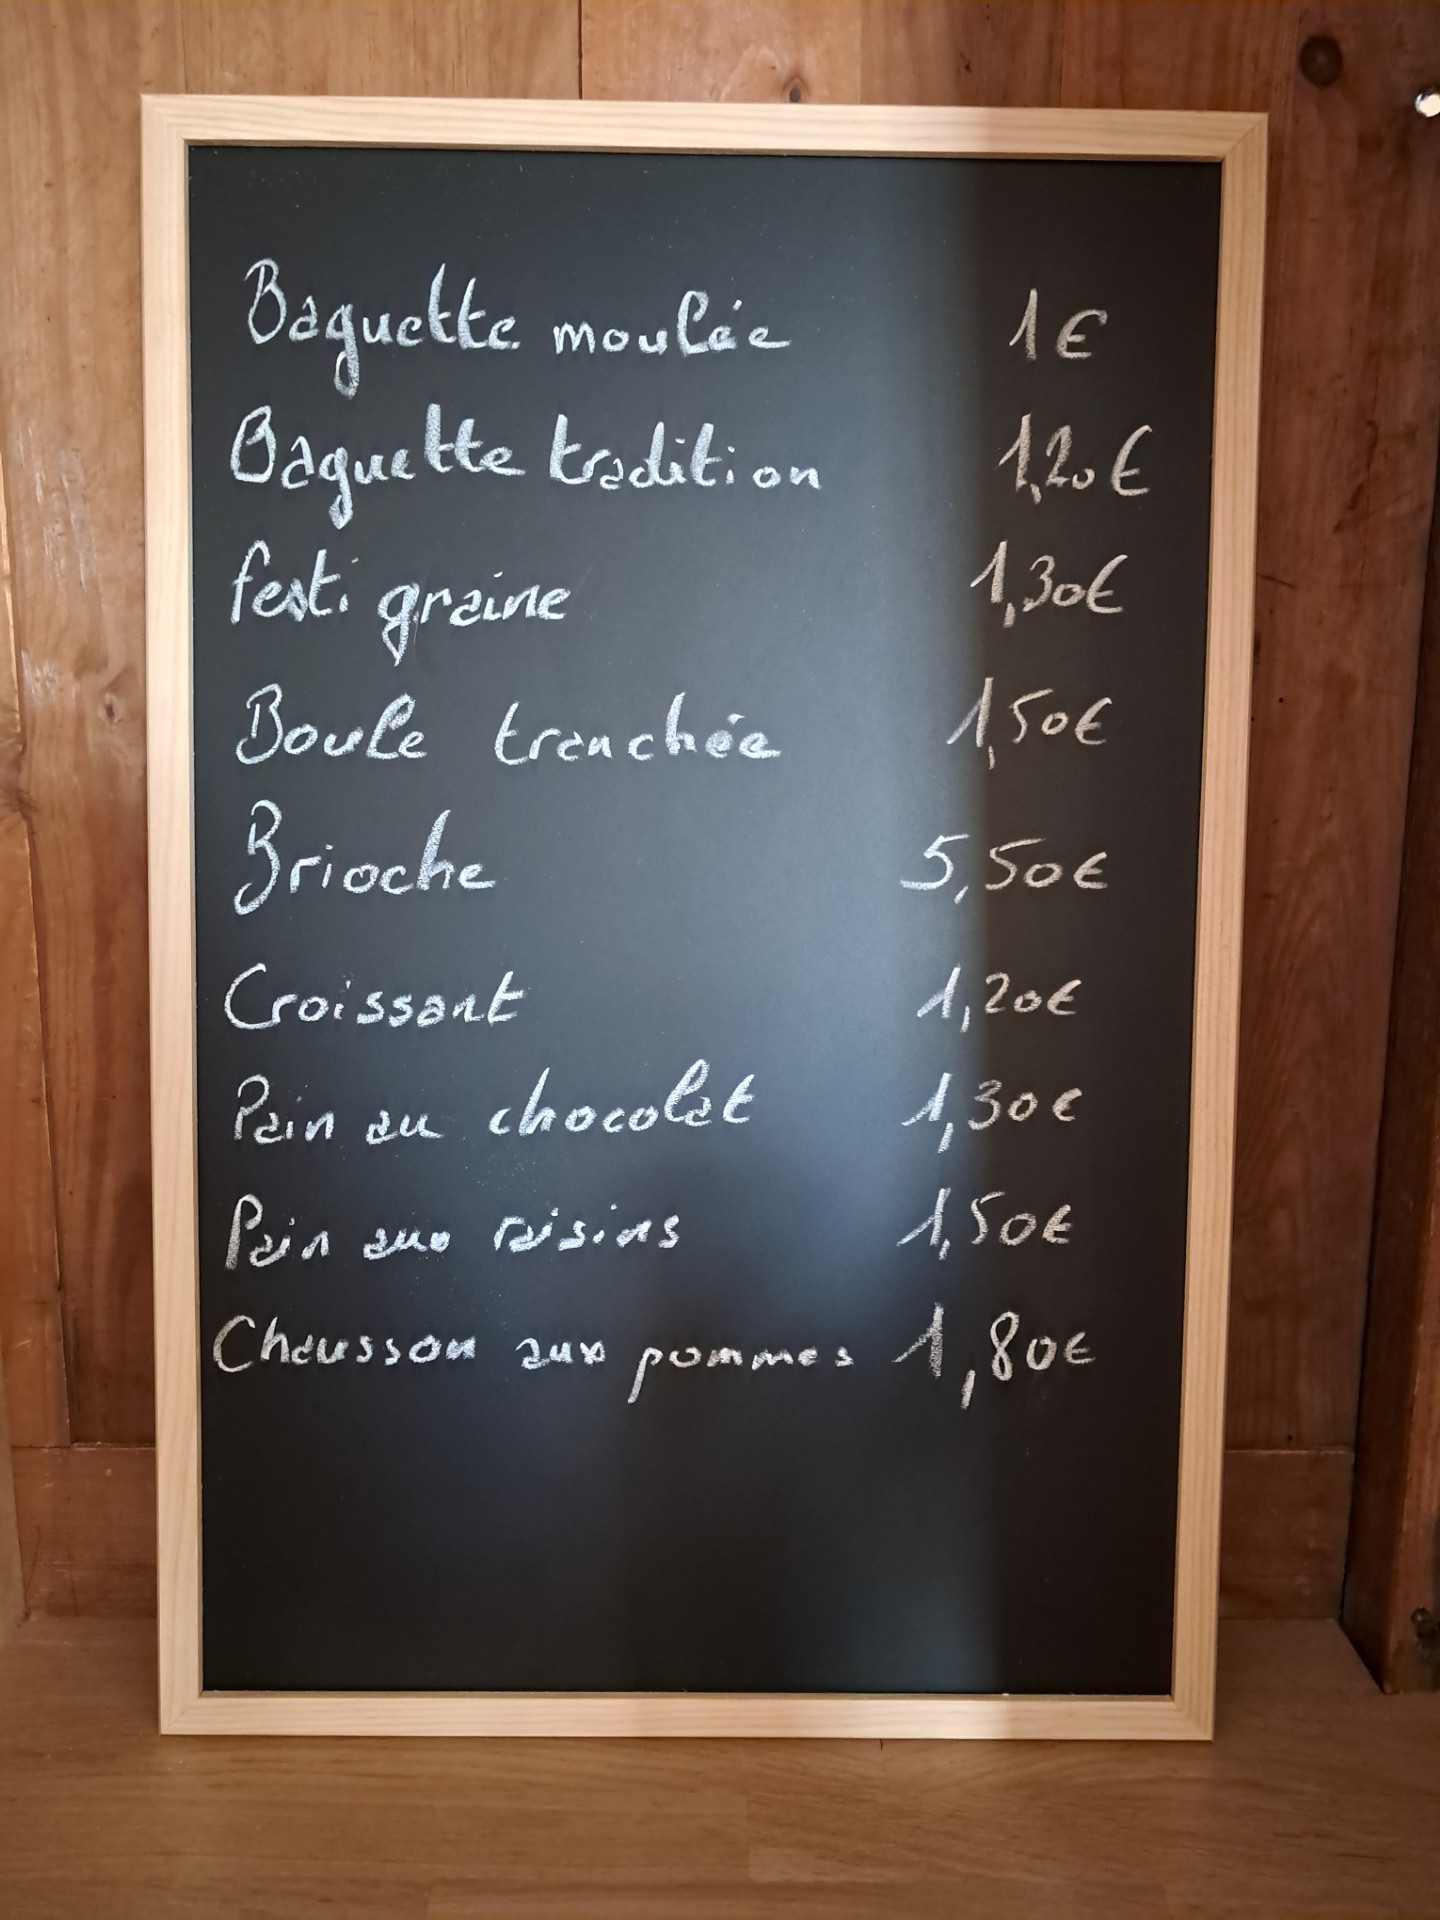 Baguette moulée 1€
Baguette tradition 1,20€
festi graine 1,30€
Boule tranchée 1,50€
Brioche 5,50€
Croissant 1,20€
Pain au chocolat 1,30€
Pain aux raisins 1,50€
Chausson aux pommes 1,80€